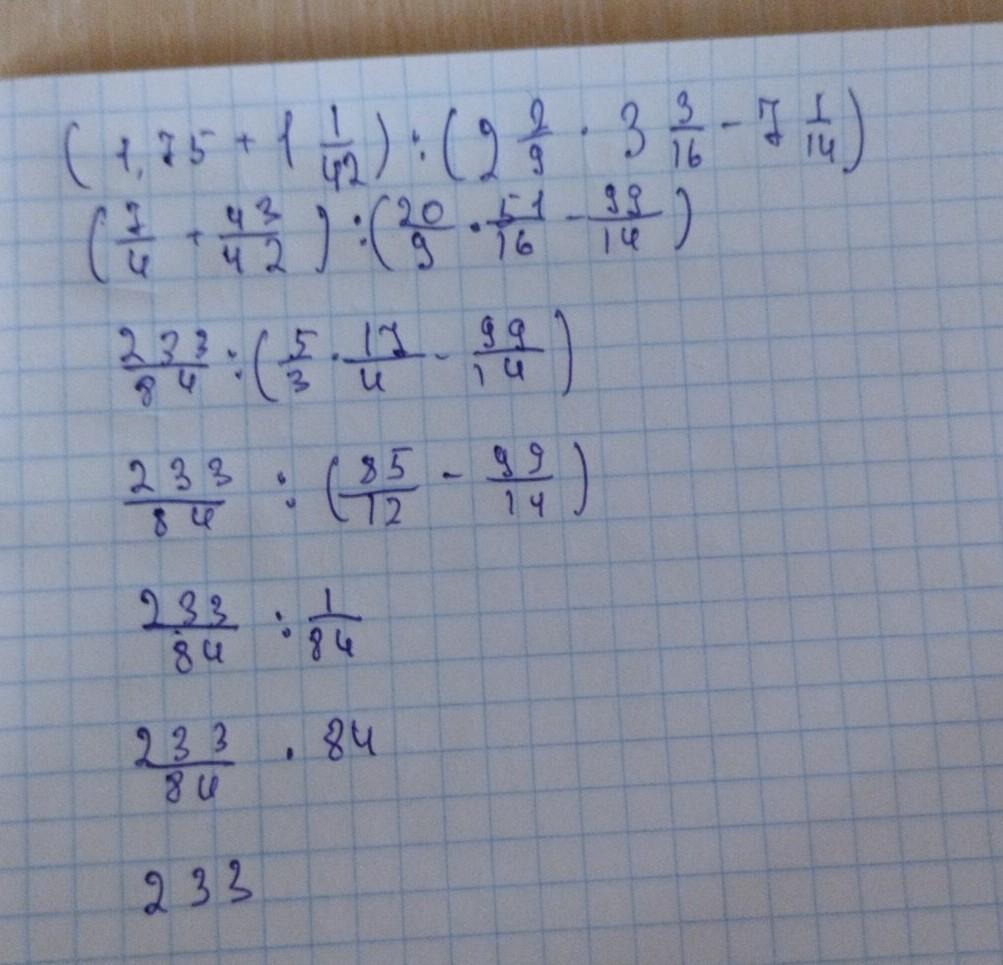 (1,75 + 1 1/42) : (2 2/9 · 3 3/16 - 7 1/14)
(7/4 + 43/42) : (20/9 · 51/16 - 99/14)
233/84 : (5/3 · 17/4 - 99/14)
233/84 : (85/12 - 99/14)
233/84 : 1/84
233/84 · 84
233